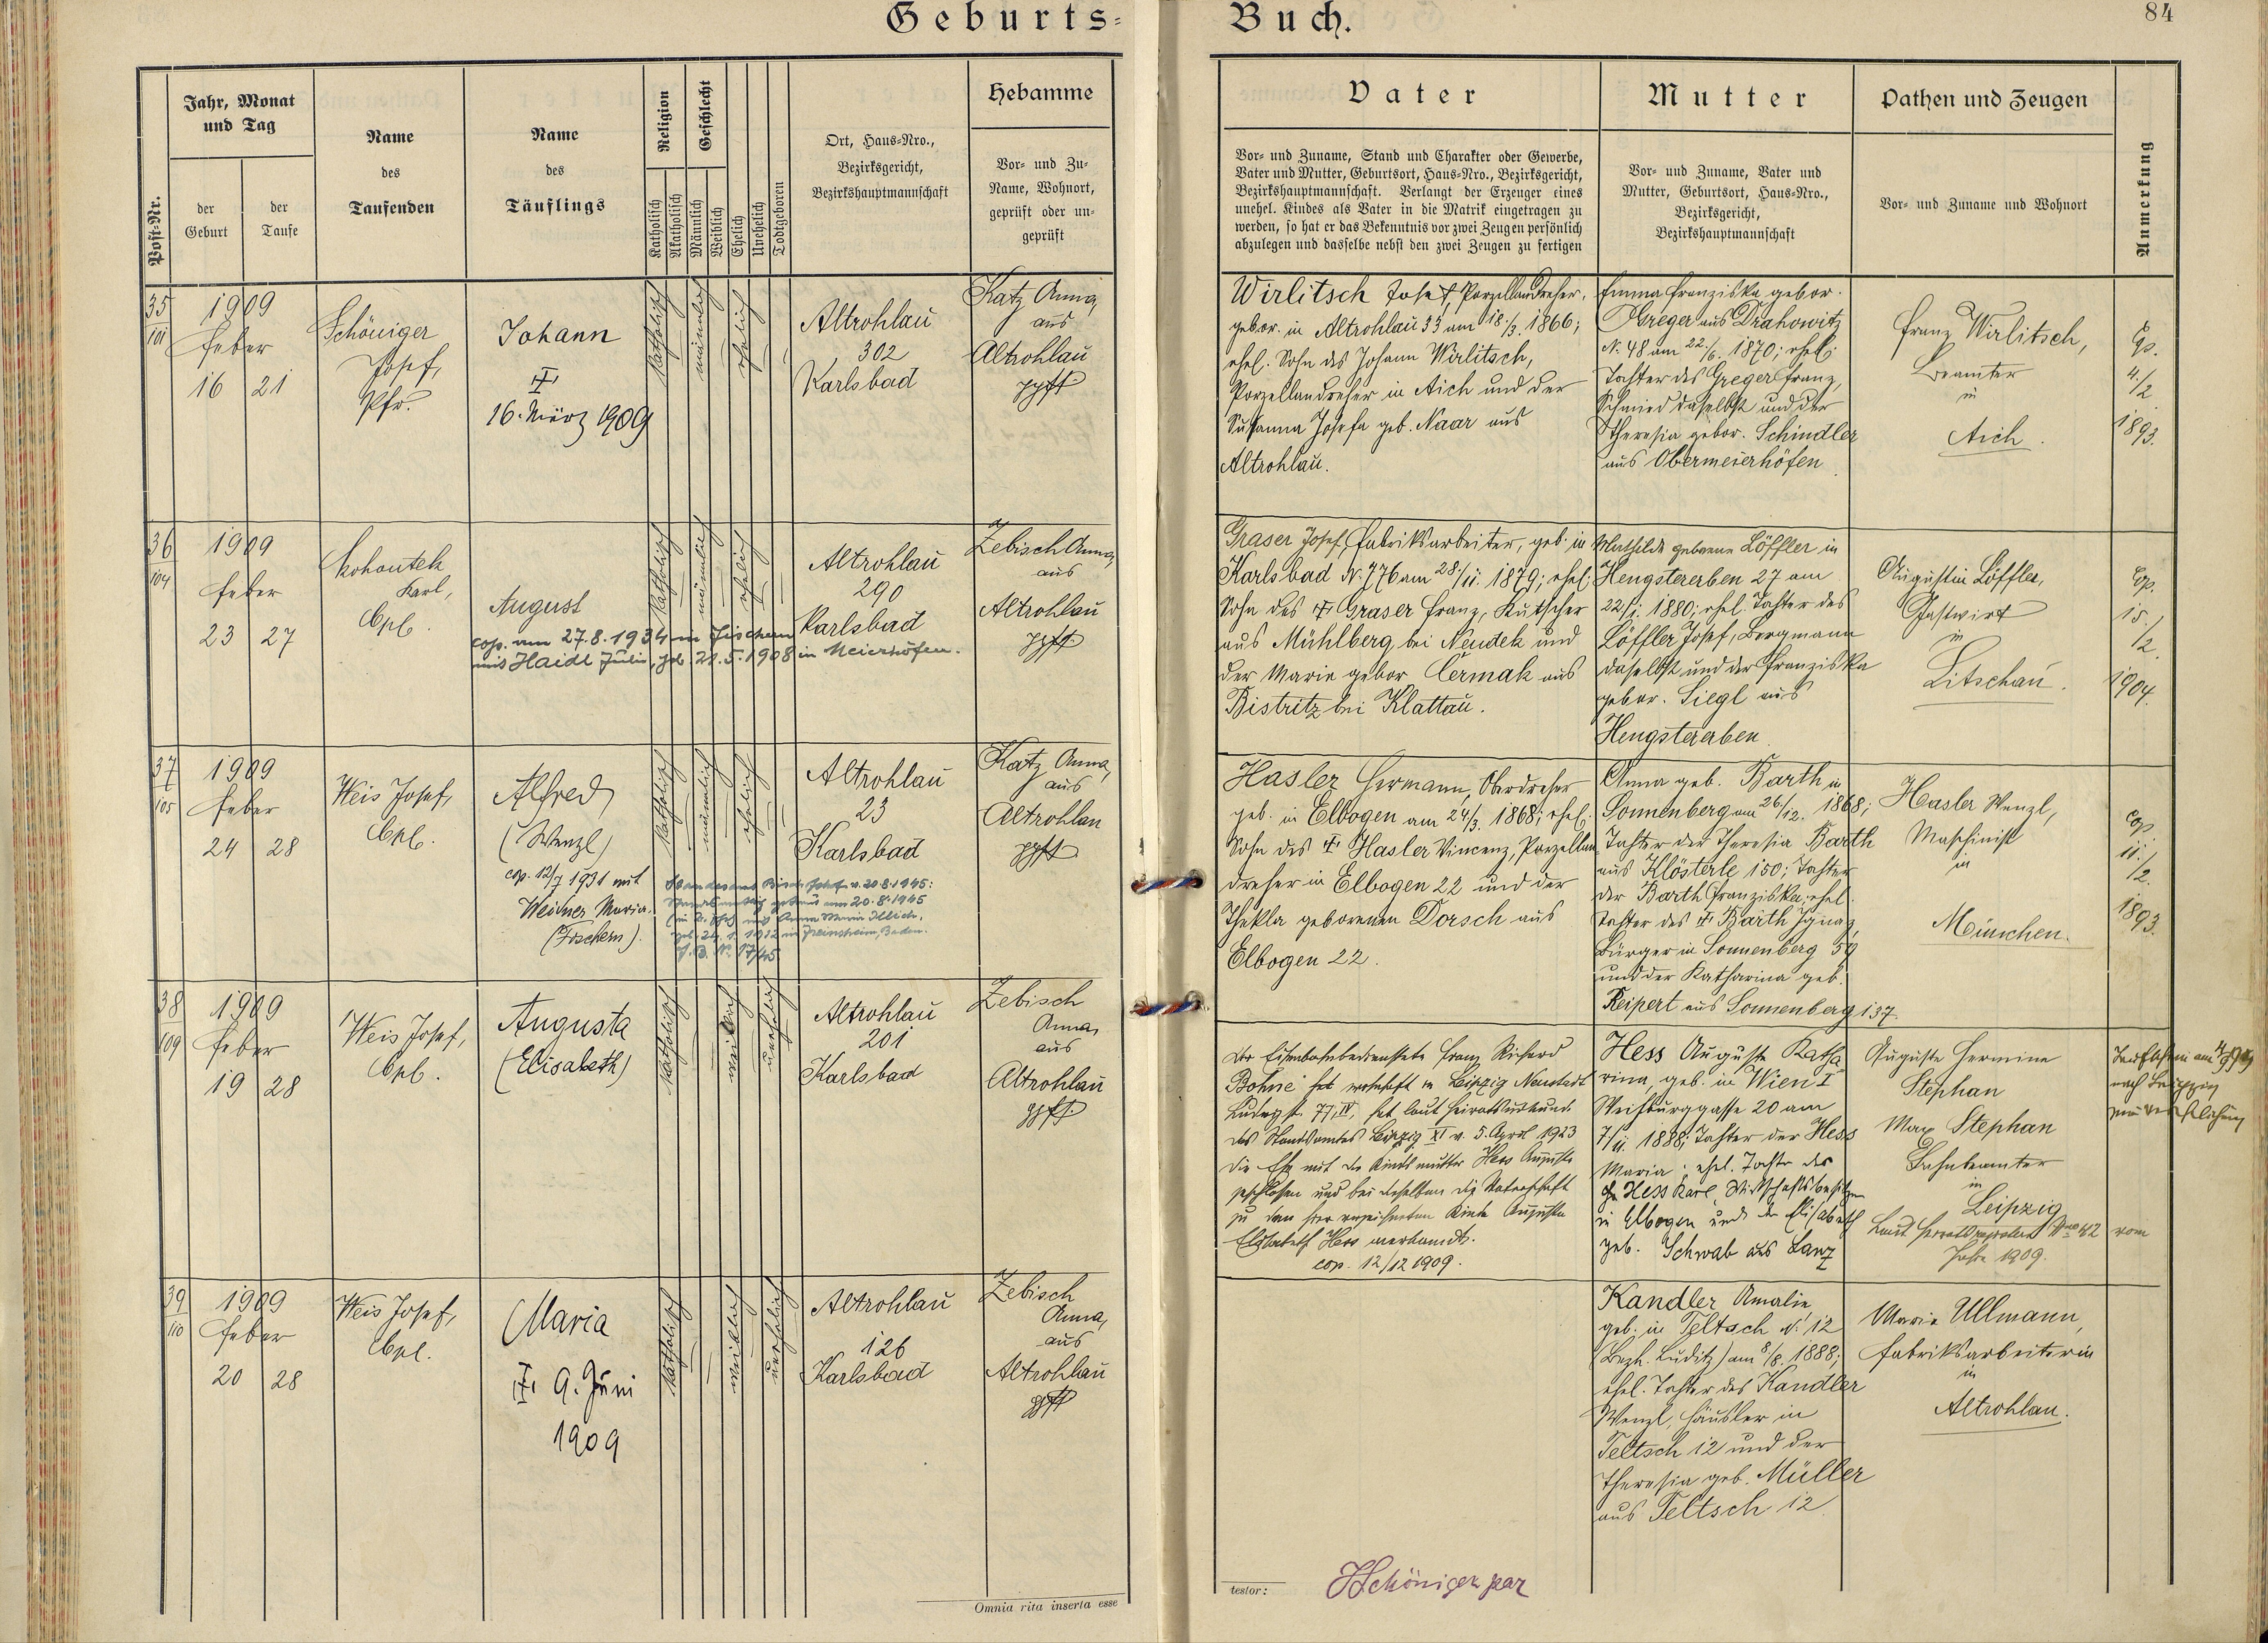 Geburts-
Buch.
84
Post-Nr.
Jahr, Monat
und Tag
der
Geburt
der
Taufe
Name
des
Taufenden
Name
des
Täuflings
Religion
Katholisch
Akatholisch
Geschlecht
Männlich
Weiblich
Ehelich
Unehelich
Todtgeboren
Ort, Haus-Nro.,
Bezirksgericht,
Bezirkshauptmannschaft
Hebamme
Vor- und Zu-
Name, Wohnort,
geprüft oder un-
geprüft
Vater
Vor- und Zuname, Stand und Charakter oder Gewerbe,
Vater und Mutter, Geburtsort, Haus-Nro., Bezirksgericht,
Bezirkshauptmannschaft. Verlangt der Erzeuger eines
unehel. Kindes als Vater in die Matrik eingetragen zu
werden, so hat er das Bekenntnis vor zwei Zeugen persönlich
abzulegen und dasselbe nebst den zwei Zeugen zu fertigen
Mutter
Vor- und Zuname, Vater und
Mutter, Geburtsort, Haus-Nro.,
Bezirksgericht,
Bezirkshauptmannschaft
Pathen und Zeugen
Vor- und Zuname und Wohnort
Anmerkung
35
101
1909
Feber
16 21
Schöniger
Josef,
Pfr.
Johann
16. März 1909
katholisch
männlich
ehelich
Altrohlau
302
Karlsbad
Katz Anna,
aus
Altrohlau
gpft
Wirlitsch Josef, Porzellandreher,
gebor. in Altrohlau 33 am 18./3. 1866;
ehel. Sohn des Johann Wirlitsch,
Porzellandreher in Aich und der
Susanna Josefa geb. Naar aus
Altrohlau.
Emma Franziska gebor.
Greger aus Drahowitz
N. 48 am 22./6. 1870; ehel.
Tochter des Greger Franz,
Schmied daselbst und der
Theresia gebor. Schindler
aus Obermeierhöfen
Franz Wirlitsch,
Beamter
in
Aich.
Cp.
4./2
1893.
36
104
1909
Feber
23 27
Kohoutek
Karl,
Cpl.
August
cop. am 27.8.1934 in Fischern
mit Haidl Julie, geb. 21.5.1908 in Meierhöfen.
katholisch
männlich
ehelich
Altrohlau
290
Karlsbad
Zebisch Anna,
aus
Altrohlau
gpft
Graser Josef, Fabriksarbeiter, geb. in
Karlsbad N. 776 am 28./11. 1879; ehel.
Sohn des Graser Franz, Kutscher
aus Mühlberg bei Neudek und
der Marie gebor Čermak aus
Bistritz bei Klattau.
Mathilde geborene Löffler in
Hengstererben 27 am
22/1. 1880; ehel. Tochter des
Löffler Josef, Bergmann
daselbst und der Franziska
gebor. Siegl aus
Hengstererben
Augustin Löffler,
Gastwirt
in
Litschau.
Cop.
15./
/2.
1904.
37
105
1909
Feber
24 28
Weis Josef,
Cpl.
Alfred
(Wenzl)
cop. 12/7 1931 mit
Weidner Maria.
(Fischern).
geb. 24. 1. 1912 in Freinsheim, Baden.
katholisch
männlich
ehelich
Altrohlau
23
Karlsbad
Katz Anna,
aus
Altrohlau
gpft
Hasler Hermann, Oberdreher
geb. in Elbogen am 24/3. 1868; ehel.
Sohn des Hasler Vincenz, Porzellan-
dreher in Elbogen 22 und der
Thekla geborenen Dorsch aus
Elbogen 22.
Anna geb. Barth in
Sonnenberg am 26./12. 1868;
Tochter der Theresia Barth
aus Klösterle 150; Tochter
der Barth Franziska, ehel.
Tochter des Barth Ignaz,
Bürger in Sonnenberg 59
und der Katharina geb.
Reipert aus Sonnenberg 137.
Hasler Wenzl,
Maschinist
in
München.
cop.
11./
/2.
1893.
38
109
1909
Feber
19 28
Weis Josef,
Cpl.
Augusta
(Elisabeth)
katholisch
weiblich
unehelich
Altrohlau
201
Karlsbad
Zebisch
Anna,
aus
Altrohlau
gpft.
Der Eisenbahnbedienstete Franz Richard
Böhme wohnhaft in Leipzig Neustadt
77, IV, hat laut Heiratsurkunde
des Standesamtes Leipzig XI v. 5. April 1923
die Ehe mit der Kindsmutter Hess Auguste
geschlossen und bei derselben die Vaterschaft
zu dem hier verzeichneten Kinde Auguste
Elisabeth Hess anerkannt.
cop. 12/12 1909.
Hess Auguste Katha
rina, geb. in Wien I
Weihburggasse 20 am
7/11. 1888; Tochter der Hess
Maria; ehel. Tochter des
Hess Karl, Wirtschaftsbesitzer
in Elbogen und der Elisabeth
geb. Schwab aus Lanz
Auguste Hermine
Stephan
Max Stephan
Bahnbeamter
in
Leipzig
Jahre 1909.
39
110
1909
Feber
20 28
Weis Josef,
Cpl.
Maria
9. Juni
1909
katholisch
weiblich
unehelich
Altrohlau
126
Karlsbad
Zebisch
Anna,
aus
Altrohlau
gpft
Kandler Amalie,
geb. in Teltsch N. 12
(Bezh. Luditz) am 8/8. 1888;
ehel. Tochter des Kandler
Wenzl, Häusler in
Teltsch 12 und der
Theresia geb. Müller
aus Teltsch 12
Marie Ullmann,
Fabriksarbeiterin
in
Altrohlau.
Omnia rita inserta esse
testor:
JSchöniger par